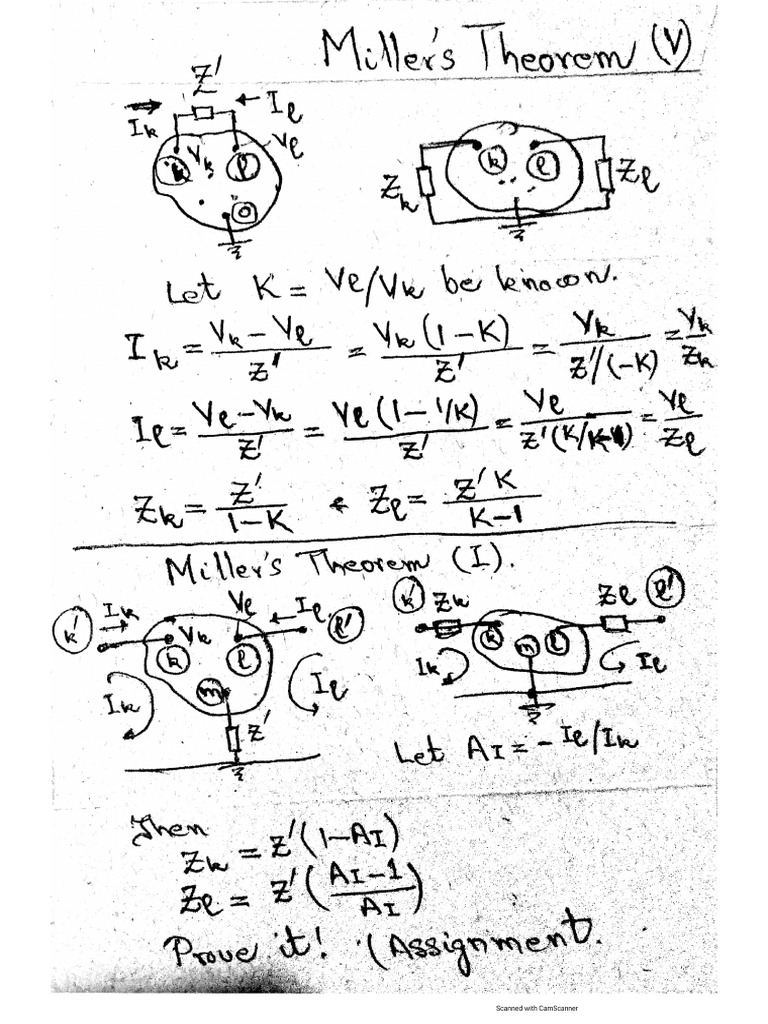 Miller's Theorem (V)
Z'
Ik
Il
Vk
Vl
k
l
o
Zk
k
l
Zl
Let K = Vl/Vk be known.
Ik = (Vk − Vl)/Z' = Vk(1−K)/Z' = Vk/(Z'/(-K)) = Vk/Zk
Il = (Vl − Vk)/Z' = Vl(1−1/K)/Z' = Vl/(Z'(K/K-1)) = Vl/Zl
Zk = Z'/(1−K) & Zl = Z'K/(K−1)
Miller's Theorem (I).
k'
Ik
Vk
Vl
Il
l'
k
l
m
Ik
Il
Z'
k'
Zk
Zl
l'
k
m
l
Ik
Il
Let AI = − Il/Ik
Then
Zk = Z'(1−AI)
Zl = Z'((AI−1)/AI)
Prove it! (Assignment.
Scanned with CamScanner